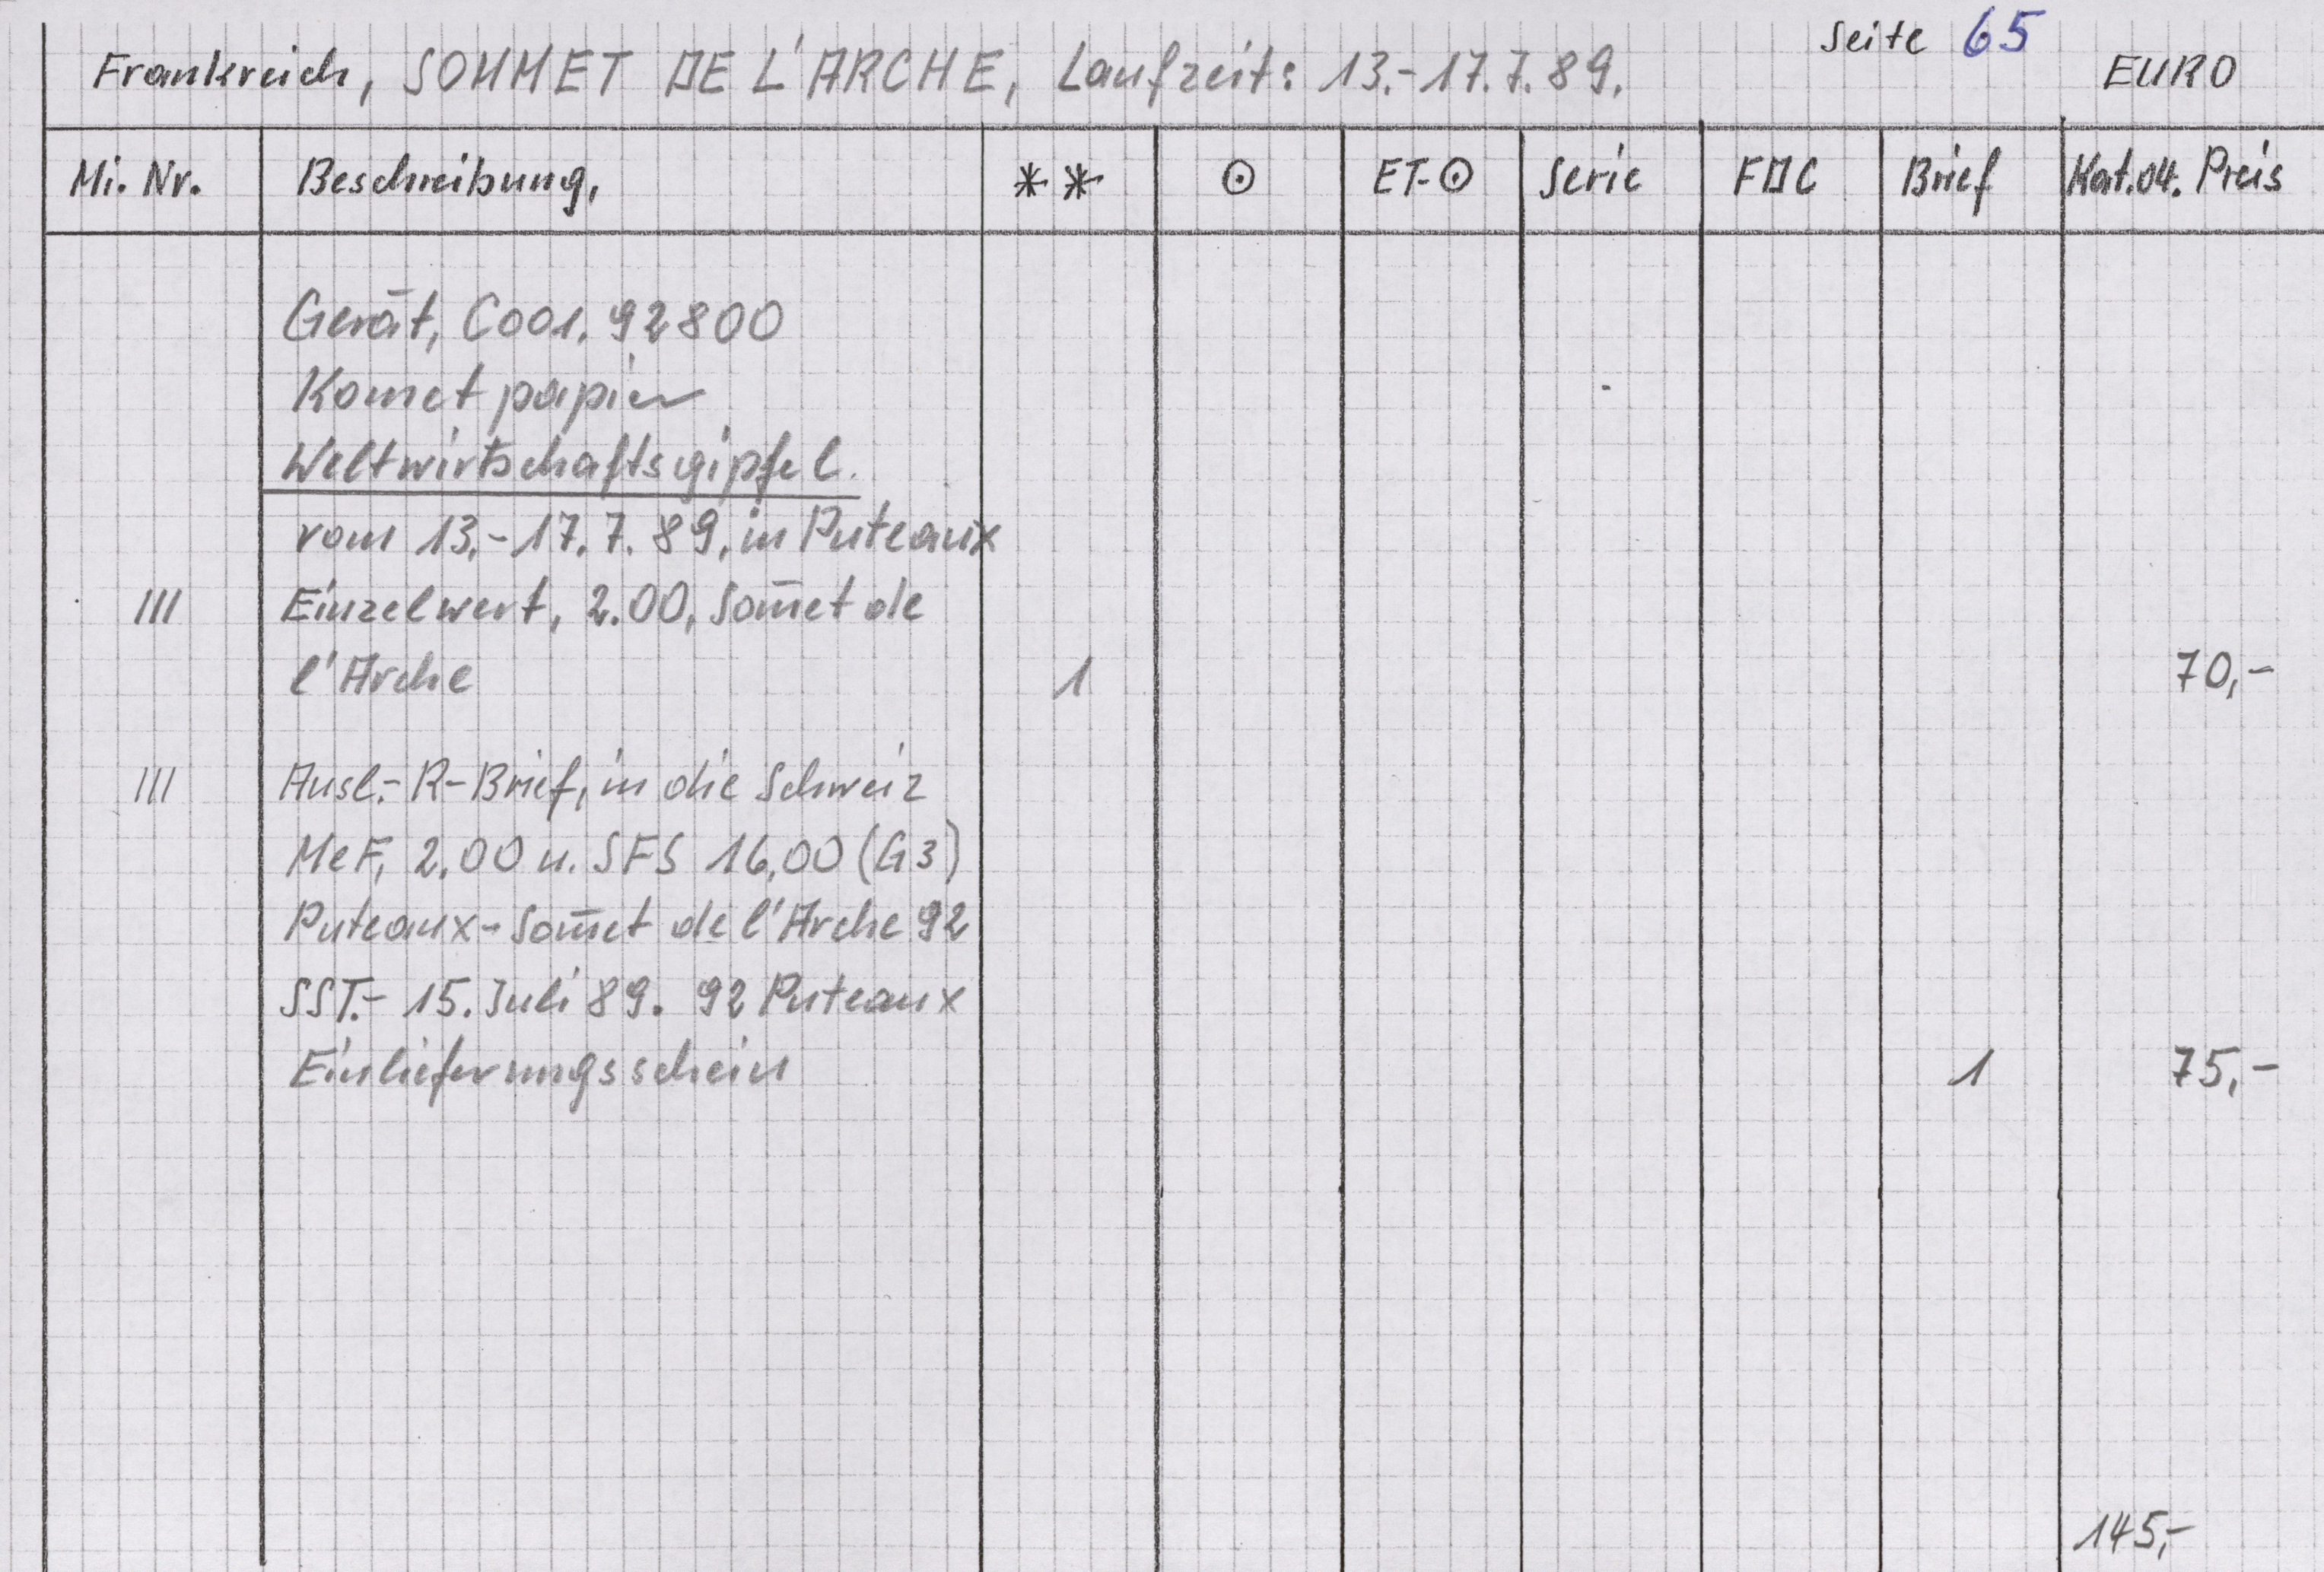 Seite 65
Frankreich, SOMMET DE L'ARCHE, Laufzeit: 13.-17.7.89. EURO
Mi. Nr. Beschreibung, ** ⊙ ET-⊙ Serie FDC Brief Kat.04. Preis
Gerät, C001. 92800
Komet papier
Weltwirtschaftsgipfel.
vom 13.-17.7.89, in Puteaux
III Einzelwert, 2.00, Som̄et de
l'Arche 1 70,-
III Ausl.-R-Brief, in die Schweiz
MeF, 2.00 u. SFS 16,00 (G3)
Puteaux-Som̄et de l'Arche 92
SST.- 15. Juli 89. 92 Puteaux
Einlieferungsschein 1 75,-
145,-